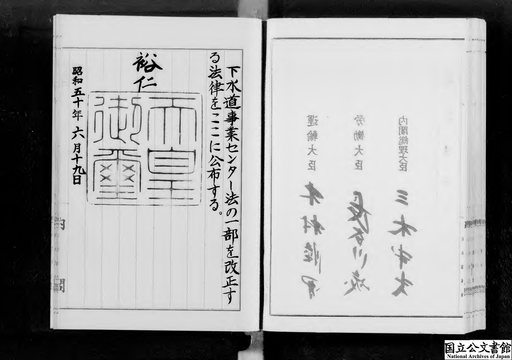 下水道事業センター法の一部を改正す
る法律をここに公布する。
裕仁
天皇
御璽
昭和五十年六月十九日
内閣
内閣総理大臣
三木武夫
労働大臣
長谷川峻
運輸大臣
木村睦男
国立公文書館
National Archives of Japan